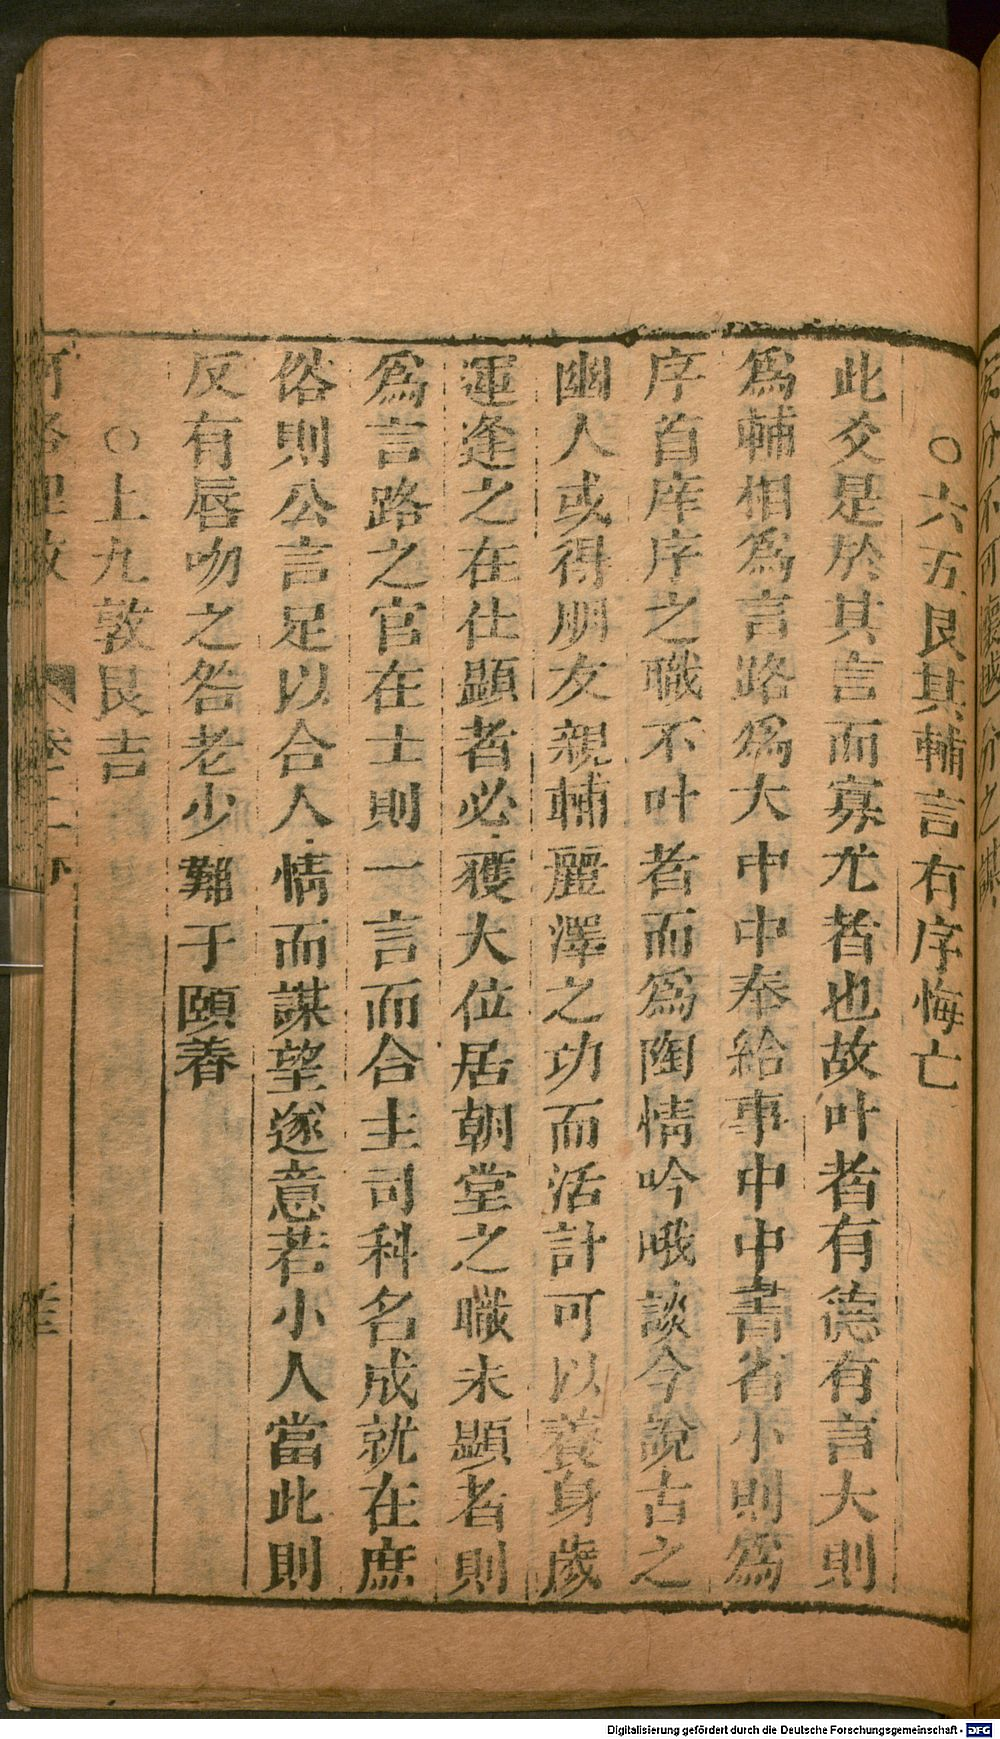 ○六五艮其輔言有序悔亡
此爻是於其言而寡尤者也故叶者有德有言大則
為輔相為言路為大中中奉給事中中書省小則為
序首庠序之職不叶者而為陶情吟哦談今說古之
幽人或得朋友親輔麗澤之功而活計可以養身歲
運逢之在仕顯者必獲大位居朝堂之職未顯者則
為言路之官在士則一言而合主司科名成就在庶
俗則公言足以合人情而謀望遂意若小人當此則
反有唇吻之咎老少難于頤養
○上九敦艮吉
Digitalisierung gefördert durch die Deutsche Forschungsgemeinschaft - DFG